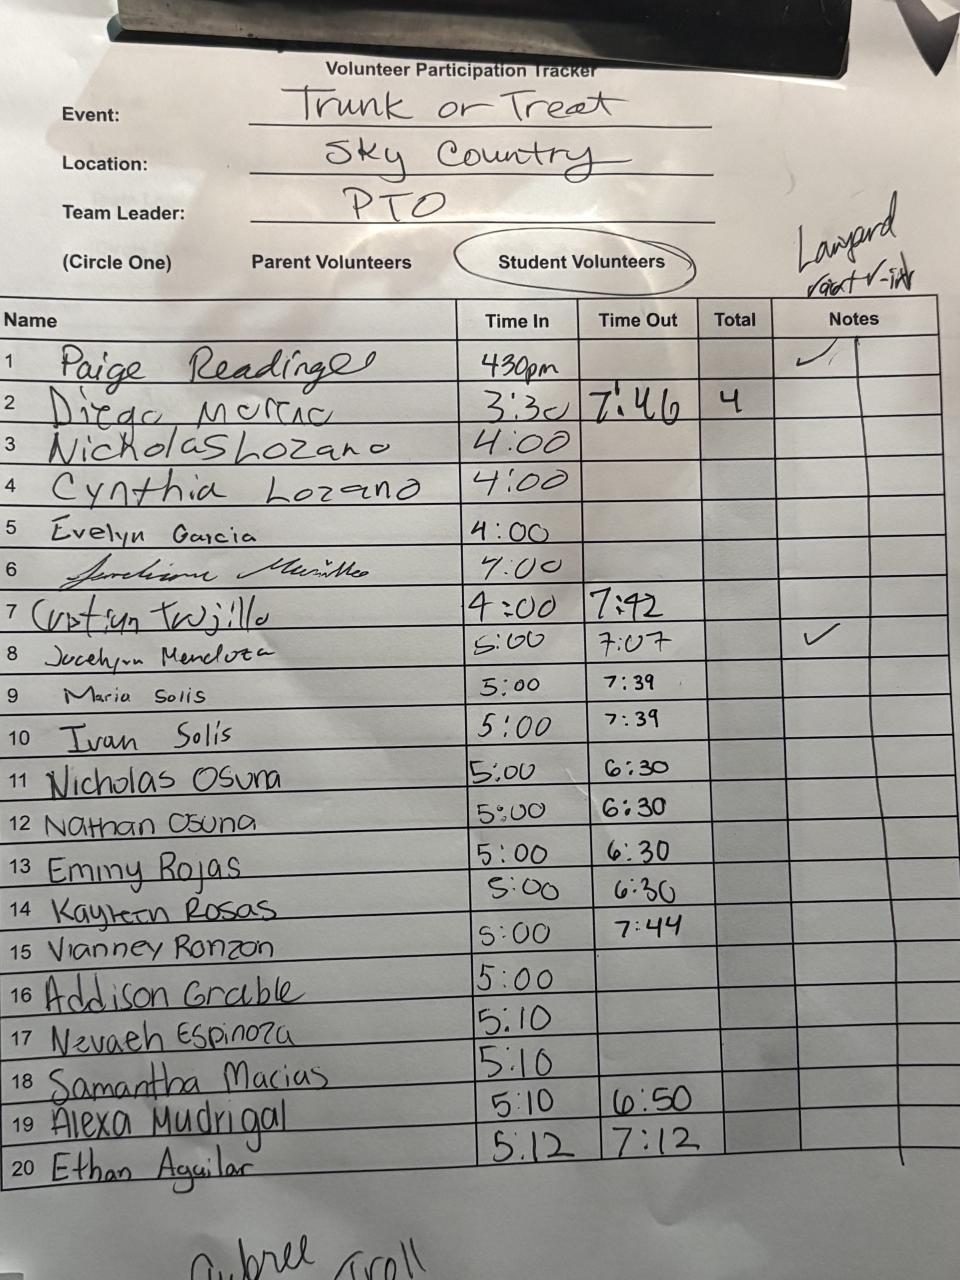 Volunteer Participation Tracker
Event: Trunk or Treat
Location: Sky Country
Team Leader: PTO
(Circle One) Parent Volunteers Student Volunteers
Lanyard
Name Time In Time Out Total Notes
1 Paige Readinger 430pm ✓
2 Diego 3:30 7:46 4
3 Nicholas Lozano 4:00
4 Cynthia Lozano 4:00
5 Evelyn Garcia 4:00
6 Murillo 4:00
7 Trujillo 4:00 7:42
8 Jocelynn Mendoza 5:00 7:07 ✓
9 Maria Solis 5:00 7:39
10 Ivan Solis 5:00 7:39
11 Nicholas Osuna 5:00 6:30
12 Nathan Osuna 5:00 6:30
13 Eminy Rojas 5:00 6:30
14 Rosas 5:00 6:30
15 Vianney Ronzon 5:00 7:44
16 Addison Grable 5:00
17 Nevaeh Espinoza 5:10
18 Samantha Macias 5:10
19 Alexa Mudrigal 5:10 6:50
20 Ethan Aguilar 5:12 7:12
Aubree Troll